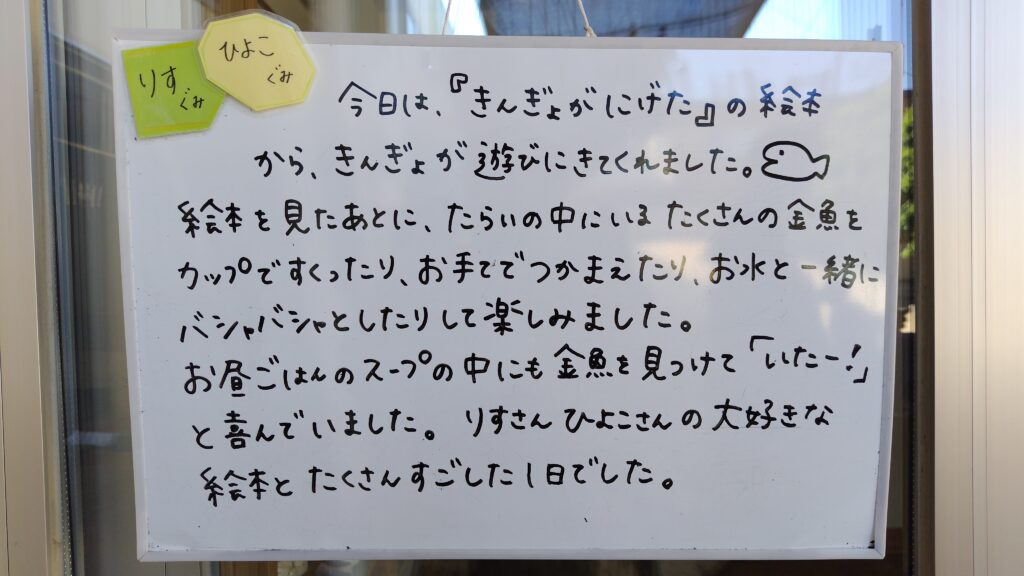 りす
ぐみ
ひよこ
ぐみ
今日は、『きんぎょがにげた』の絵本
から、きんぎょが遊びにきてくれました。
絵本を見たあとに、たらいの中にいるたくさんの金魚を
カップですくったり、お手てでつかまえたり、お水と一緒に
バシャバシャとしたりして楽しみました。
お昼ごはんのスープの中にも金魚を見つけて「いたー!」
と喜んでいました。りすさんひよこさんの大好きな
絵本とたくさんすごした1日でした。